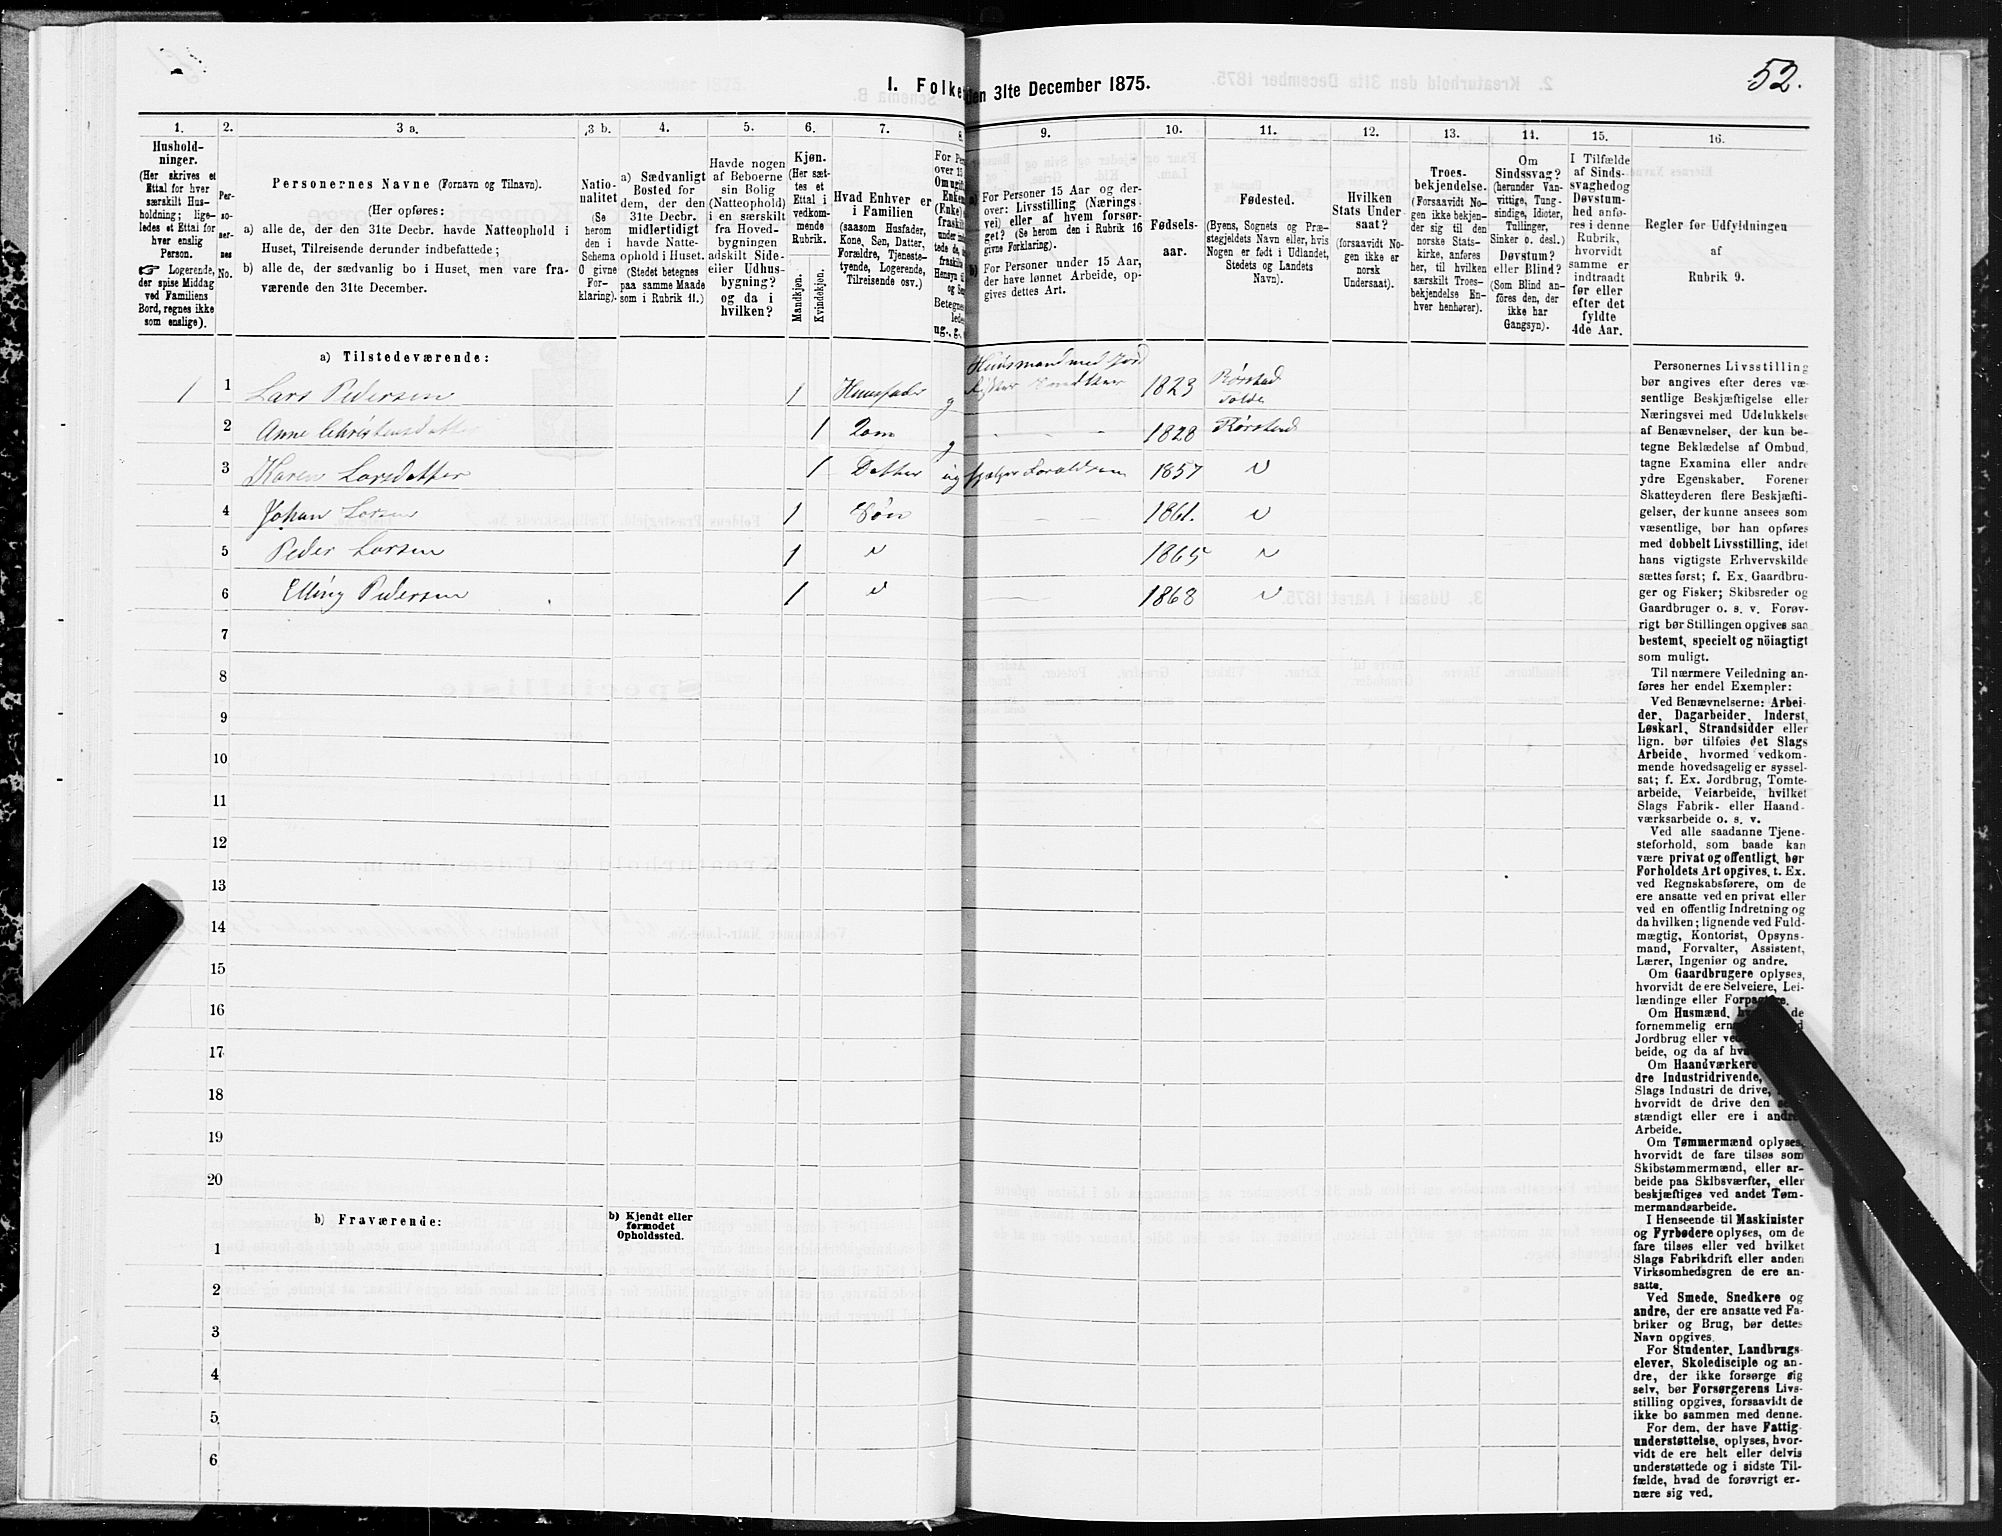 52.
I. Folke
den 31te December 1875.
1.
2.
3 a.
3 b.
4.
5.
6.
7.
8.
9.
10.
11.
12.
13.
14.
15.
16.
Hushold-
ninger.
(Her skrives et
Ettal for hver
særskilt Hus-
holdning; lige-
ledes et Ettal for
hver enslig
Person.
☞ Logerende,
der spise Middag
ved Familiens
Bord, regnes ikke
som enslige).
Per-
so-
ner-
nes
No.
Personernes Navne (Fornavn og Tilnavn).
(Her opføres:
a) alle de, der den 31te Decbr. havde Natteophold i
Huset, Tilreisende derunder indbefattede;
b) alle de, der sædvanlig bo i Huset, men vare fra-
værende den 31te December.
Natio-
nalitet
(Se
herom
den i
Schema
O givne
For-
klaring).
a) Sædvanligt
Bosted for
dem, der den
31te Decbr.
midlertidigt
havde Natte-
ophold i Huset.
(Stedet betegnes
paa samme Maade
som i Rubrik 11.)
Havde nogen
af Beboerne
sin Bolig
(Natteophold)
i en særskilt
fra Hoved-
bygningen
adskilt Side-
eller Udhus-
bygning?
og da i
hvilken?
Kjøn.
(Her sæt-
tes et
Ettal i
vedkom-
mende
Rubrik.
Mandkjøn.
Kvindekjøn.
Hvad Enhver er
i Familien
(saasom Husfader,
Kone, Søn, Datter,
Forældre, Tjeneste-
tyende, Logerende,
Tilreisende osv.)
For Pe
over 15
Om ugift
Enkem
(Enke)
fraskilt
Betegnes
ledes
ug., g.,
a) For Personer 15 Aar og der-
over: Livsstilling (Nærings
vei) eller af hvem forsør-
get? (Se herom den i Rubrik 16
givne Forklaring).
b) For Personer under 15 Aar,
der have lønnet Arbeide, op-
gives dettes Art.
Fødsels-
aar.
Fødested.
(Byens, Sognets og Præ-
stegjeldets Navn eller, hvis
Nogen er født i Udlandet,
Stedets og Landets
Navn).
Hvilken
Stats Under
saat?
(forsaavidt No-
gen ikke er
norsk
Undersaat).
Troes-
bekjendelse.
(Forsaavidt No-
gen ikke bekjen-
der sig til den
norske Stats-
kirke, anføres
her, til hvilken
særskilt Troes-
bekjendelse En-
hver henhører).
Om
Sindssvag?
(herunder Van-
vittige, Tung-
sindige, Idioter,
Tullinger,
Sinker o. desl.)
Døvstum?
eller Blind?
(Som Blind an-
føres den, der
ikke har
Gangsyn).
I Tilfælde
af Sinds-
svaghed og
Døvstum-
hed anfø-
res i denne
Rubrik,
hvorvidt
samme er
indtraadt
før eller
efter det
fyldte
4de Aar.
Regler for Udfyldningen
af
Rubrik 9.
a) Tilstedeværende:
1 1 Lars Pedersen 1 Huusfader g Huusmand med Jord 1823 Rørstad
2 Anne Christensdatter 1 g 1828 Rørstad
3 Karen Larsdatter 1 Datter ug hjælper Forældrene 1857 v
4 Johan Larsen 1 Søn 1861. v
5 Peder Larsen 1 v 1865 v
6 Elling Pedersen 1 v 1868 v
7
8
9
10
11
12
13
14
15
16
17
18
19
20
b) Fraværende:
b) Kjendt eller
formodet
Opholdssted.
1
2
3
4
5
6
Personernes Livsstilling
bør angives efter deres væ-
sentlige Beskjæftigelse eller
Næringsvei med Udelukkelse
af Benævnelser, der kun be-
tegne Beklædelse af Ombud,
tagne Examina eller andre
ydre Egenskaber. Forener
Skatteyderen flere Beskjæfti-
gelser, der kunne ansees som
væsentlige, bør han opføres
med dobbelt Livsstilling, idet
hans vigtigste Erhvervskilde
sættes først; f. Ex. Gaardbru-
ger og Fisker; Skibsreder og
Gaardbruger o. s. v. Forøv-
rigt bør Stillingen opgives saa
bestemt, specielt og nöiagtigt
som muligt.
Til nærmere Veiledning an-
føres her endel Exempler:
Ved Benævnelserne: Arbei-
der, Dagarbeider, Inderst,
Løskarl, Strandsidder eller
lign. bør tilføies det Slags
Arbeide, hvormed vedkom-
mende hovedsagelig er syssel-
sat; f. Ex. Jordbrug, Tomte-
arbeide, Veiarbeide, hvilket
Slags Fabrik- eller Haand-
værksarbeide o. s. v.
Ved alle saadanne Tjene-
steforhold, som baade kan
være privat og offentligt, bør
Forholdets Art opgives, t. Ex.
ved Regnskabsførere, om de
ere ansatte ved en privat eller
ved en offentlig Indretning og
da hvilken; lignende ved Fuld-
mægtig, Kontorist, Opsyns-
mand, Forvalter, Assistent,
Lærer, Ingeniør og andre.
Om Gaardbrugere oplyses,
hvorvidt de ere Selveiere, Lei-
lændinge eller Forpagtere.
Om Husmænd, de
fornemmelig ern
Jordbrug eller ve
beide, og da af hv
Om Haandværkere
dre Industridrivende,
Slags Industri de drive,
hvorvidt de drive den
stændigt eller ere i andres
Arbeide.
Om Tømmermænd oplyses,
hvorvidt de fare tilsøs som
Skibstømmermænd, eller ar-
beide paa Skibsværfter, eller
beskjæftiges ved andet Tøm-
mermandsarbeide.
I Henseende til Maskinister
og Fyrbødere oplyses, om de
fare tilsøs eller ved hvilket
Slags Fabrikdrift eller anden
Virksomhedsgren de ere an-
satte.
Ved Smede, Snedkere og
andre, der ere ansatte ved Fa-
briker og Brug, bør dettes
Navn opgives.
For Studenter, Landbrugs-
elever, Skoledisciple og an-
dre, der ikke forsørge sig
selv, bør Forsørgerens Livs-
stilling opgives, forsaavidt de
ikke bo sammen med denne.
For dem, der have Fattig-
understøttelse, oplyses, hvor-
vidt de ere helt eller delvis
understøttede og i sidste Til-
fælde, hvad de forøvrigt er-
nære sig ved.